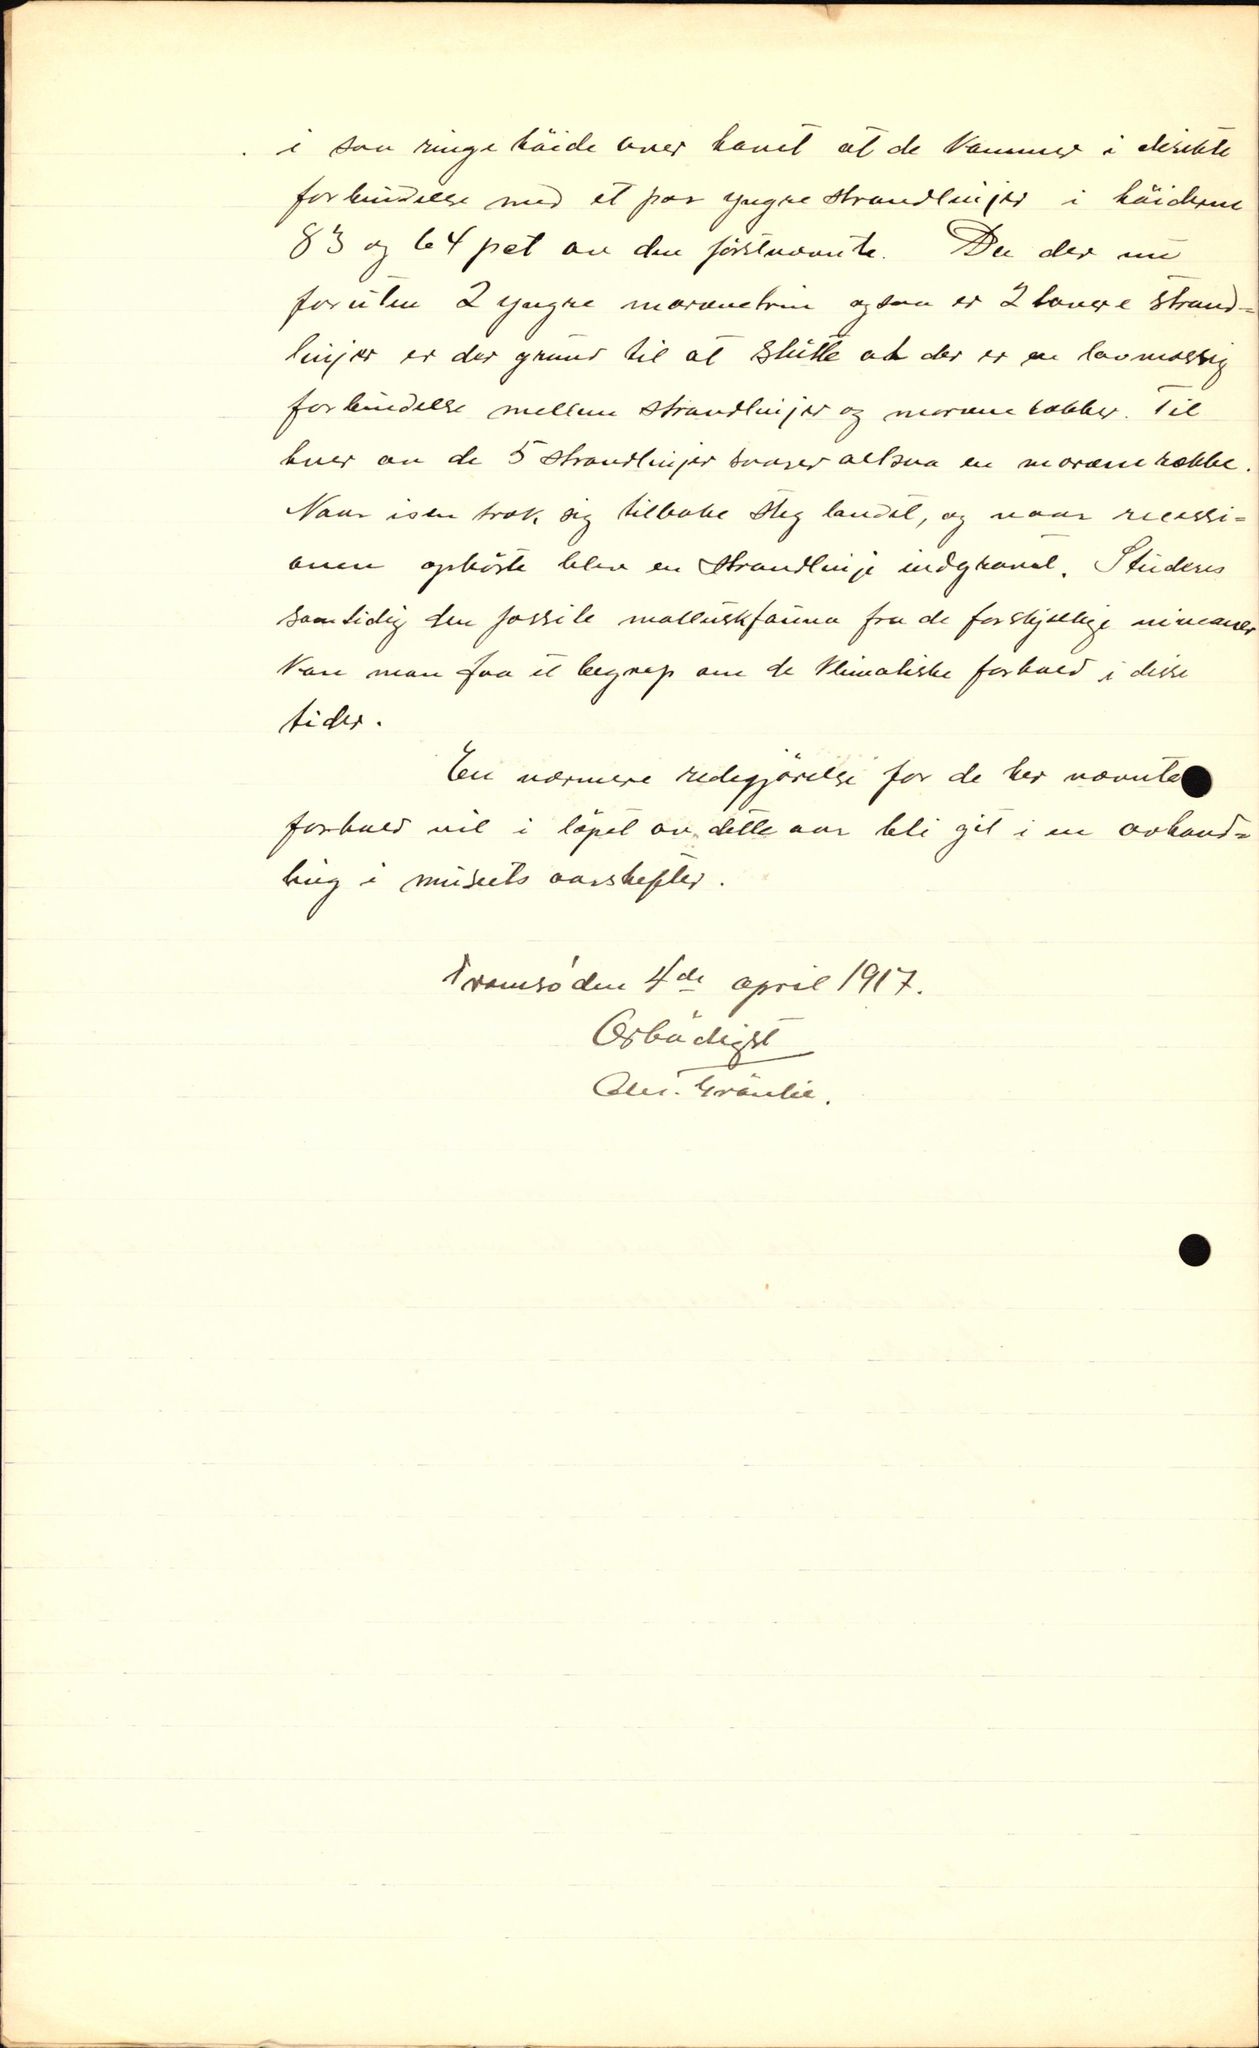 i saa ringe höide over havet at de kommer i direkte
forbindelse med et par yngre strandlinjer i höiderne
83 og 64 pct av den förstnævnte. Da der nu
foruten 2 yngre morænetrin ogsaa er 2 lavere strand=
linjer er der grund til at slutte at der er en lovmæssig
forbindelse mellem strandlinjer og moræne rækker. Til
hver av de 5 strandlinjer svarer altsaa en moræne række.
Naar isen trak sig tilbake steg landet, og naar recessi=
onen ophörte blev en strandlinje indgravet. Studeres
samtidig den fossile molluskfauna fra de forskjellige niveauer
kan man faa et begrep om de klimatiske forhold i disse
tider.
En nærmere redegjörelse for de her nævnte
forhold vil i löpet av dette aar bli git i en avhand=
ling i museets aarshefter.
Tromsö den 4de april 1917.
Ærbödigst
Ole T. Grönlie.